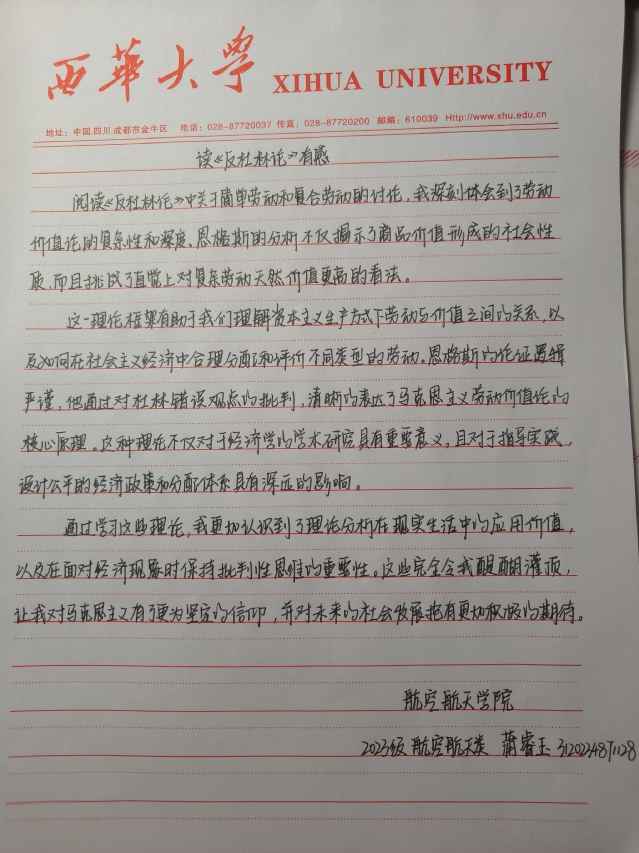 西華大学 XIHUA UNIVERSITY
地址：中国.四川.成都市金牛区 电话：028-87720037 传真：028-87720200 邮编：610039 Http://www.xhu.edu.cn
读《反杜林论》有感
阅读《反杜林论》中关于简单劳动和复合劳动的讨论，我深刻体会到了劳动
价值论的复杂性和深度。恩格斯的分析不仅揭示了商品价值形成的社会性
质，而且挑战了直觉上对复杂劳动天然价值更高的看法。
这一理论框架有助于我们理解资本主义生产方式下劳动与价值之间的关系，以
及如何在社会主义经济中合理分配和评价不同类型的劳动。恩格斯的论证逻辑
严谨，他通过对杜林错误观点的批判，清晰的表达了马克思主义劳动价值论的
核心原理。这种理论不仅对于经济学的学术研究具有重要意义，且对于指导实践，
设计公平的经济政策和分配体系具有深远的影响。
通过学习这些理论，我更加认识到了理论分析在现实生活中的应用价值，
以及在面对经济现象时保持批判性思维的重要性。这些完全令我醍醐灌顶，
让我对马克思主义有了更为坚定的信仰，并对未来的社会发展抱有更加积极的期待。
航空航天学院
2023级 航空航天类 蒲睿玉